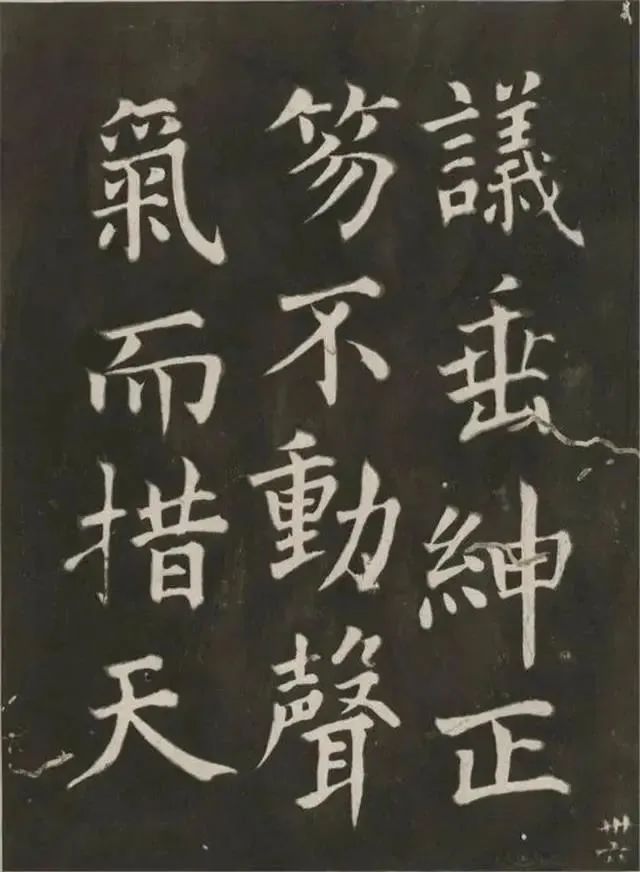 議垂紳正
笏不動聲
氣而措天
卅六